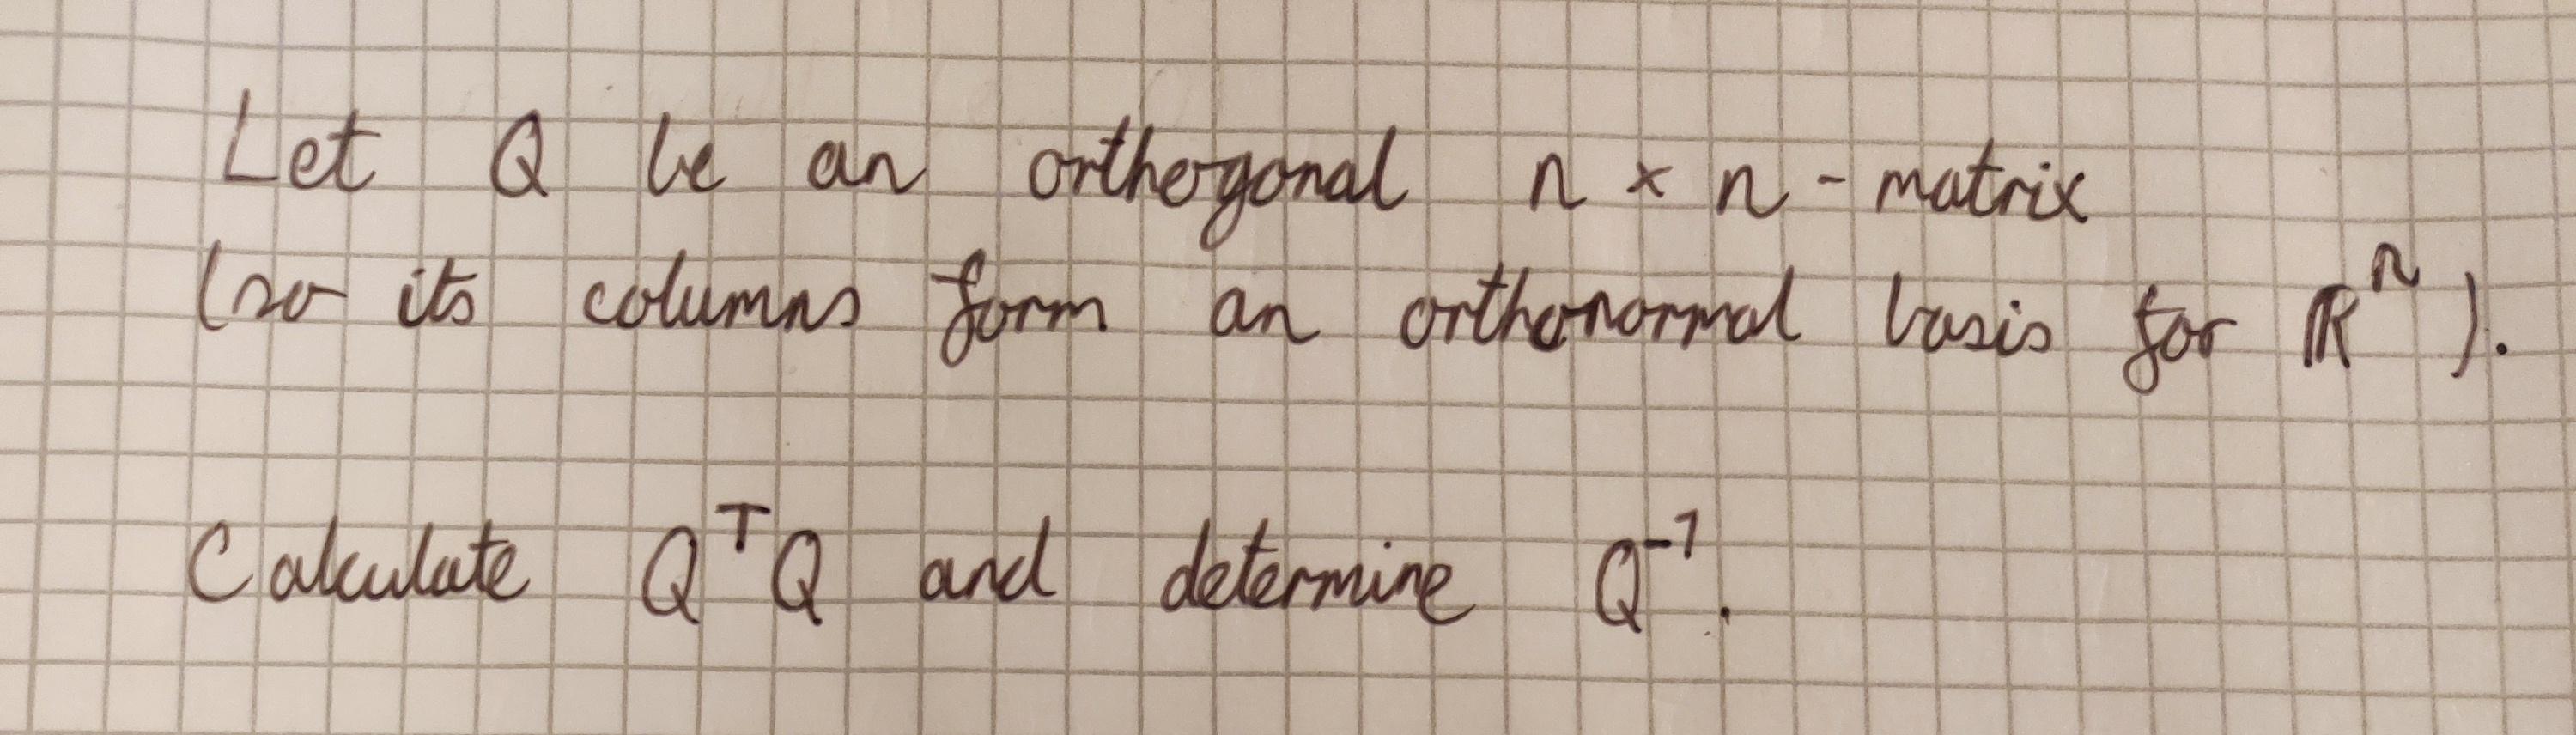 Let Q be an orthogonal n × n - matrix
(so its columns form an orthonormal basis for ℝⁿ).
Calculate QᵀQ and determine Q⁻¹.